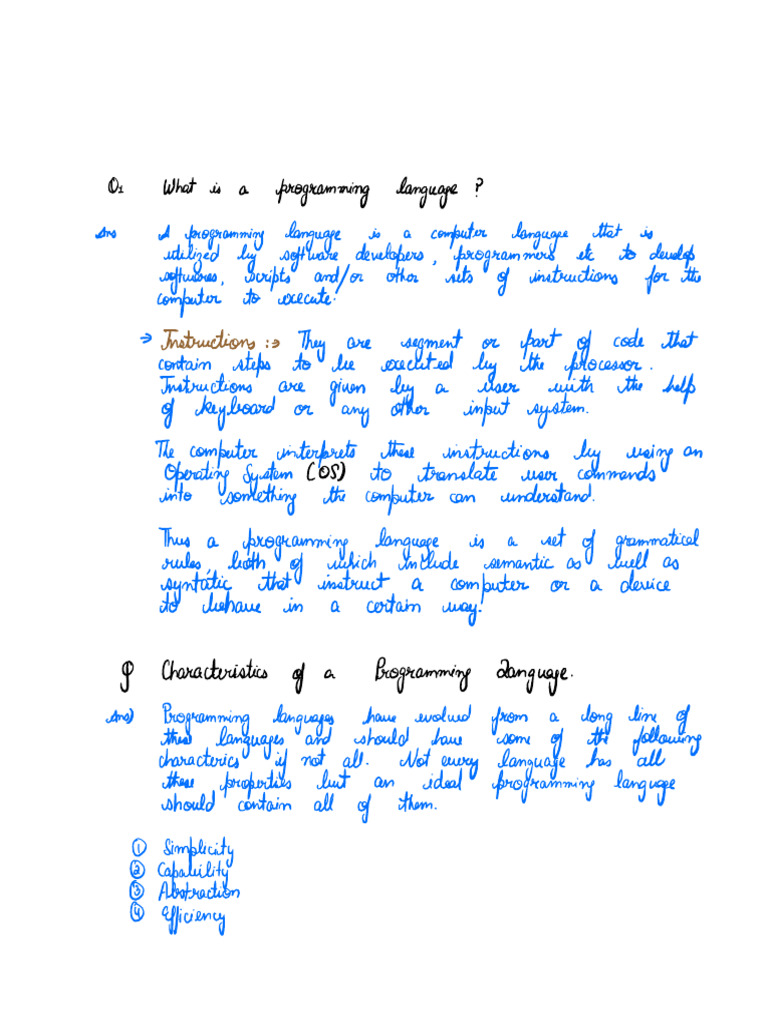 Q1 What is a programming language ?
Ans A programming language is a computer language that is
utilized by software developers, programmers etc to develop
softwares, scripts and/or other sets of instructions for the
computer to execute.
→ Instructions :→ They are segment or part of code that
contain steps to be executed by the processor.
Instructions are given by a user with the help
of keyboard or any other input system.
The computer interprets these instructions by using an
Operating System (OS) to translate user commands
into something the computer can understand.
Thus a programming language is a set of grammatical
rules both of which include semantic as well as
syntatic that instruct a computer or a device
to behave in a certain way.
Q Characteristics of a Programming Language.
Ans) Programming languages have evolved from a long line of
these languages and should have some of the following
characterics if not all. Not every language has all
these properties but an ideal programming language
should contain all of them.
① Simplicity
② Capability
③ Abstraction
④ Efficiency